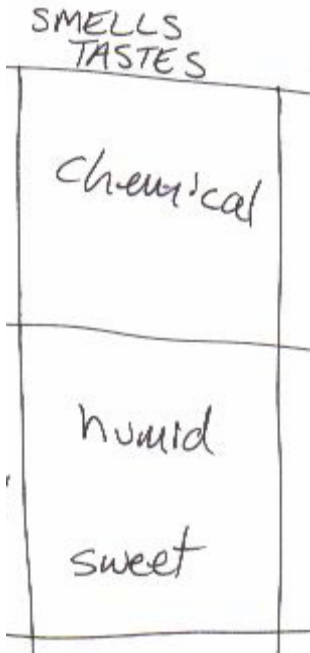 SMELLS
TASTES
chemical
humid
sweet